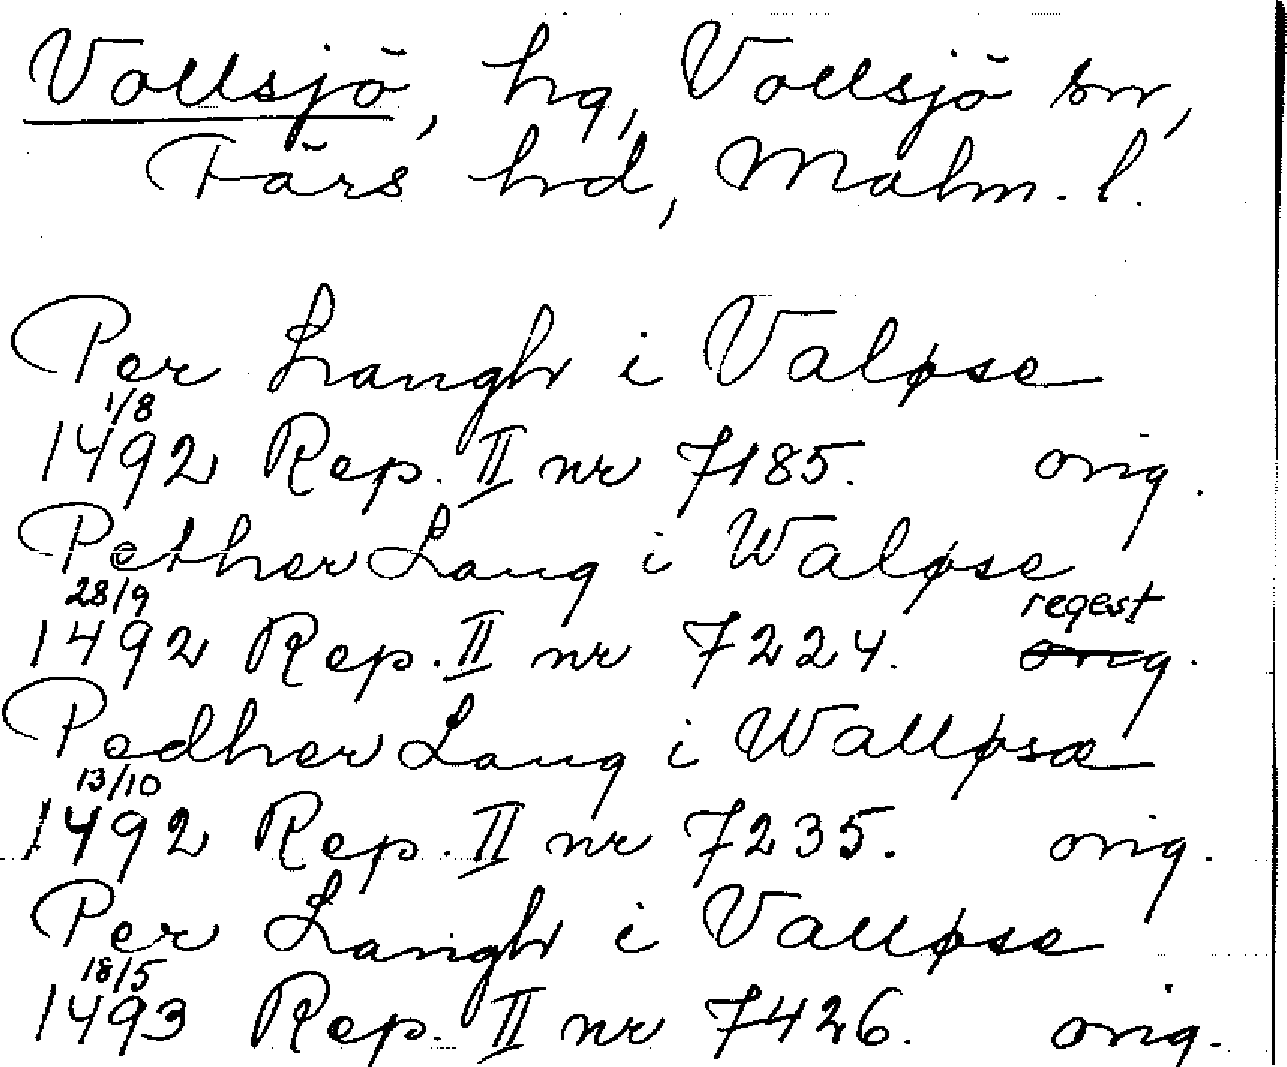 Vollsjö, hg, Vollsjö sn,
Färs hd, Malm. l.
Per Langh i Valøse
1/8
1492 Rep. II nr 7185. orig.
Pether Lang i Waløse
28/9 regest
1492 Rep. II nr 7224. orig.
Pedher Lang i Walløsæ
13/10
1492 Rep. II nr 7235. orig.
Per Langh i Valløse
18/5
1493 Rep. II nr 7426. orig.